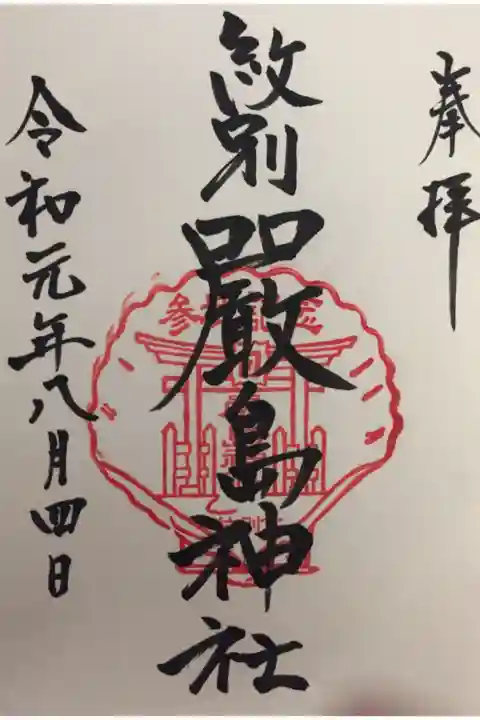 奉拝
紋別
厳島神社
参拝記念
令和元年八月四日